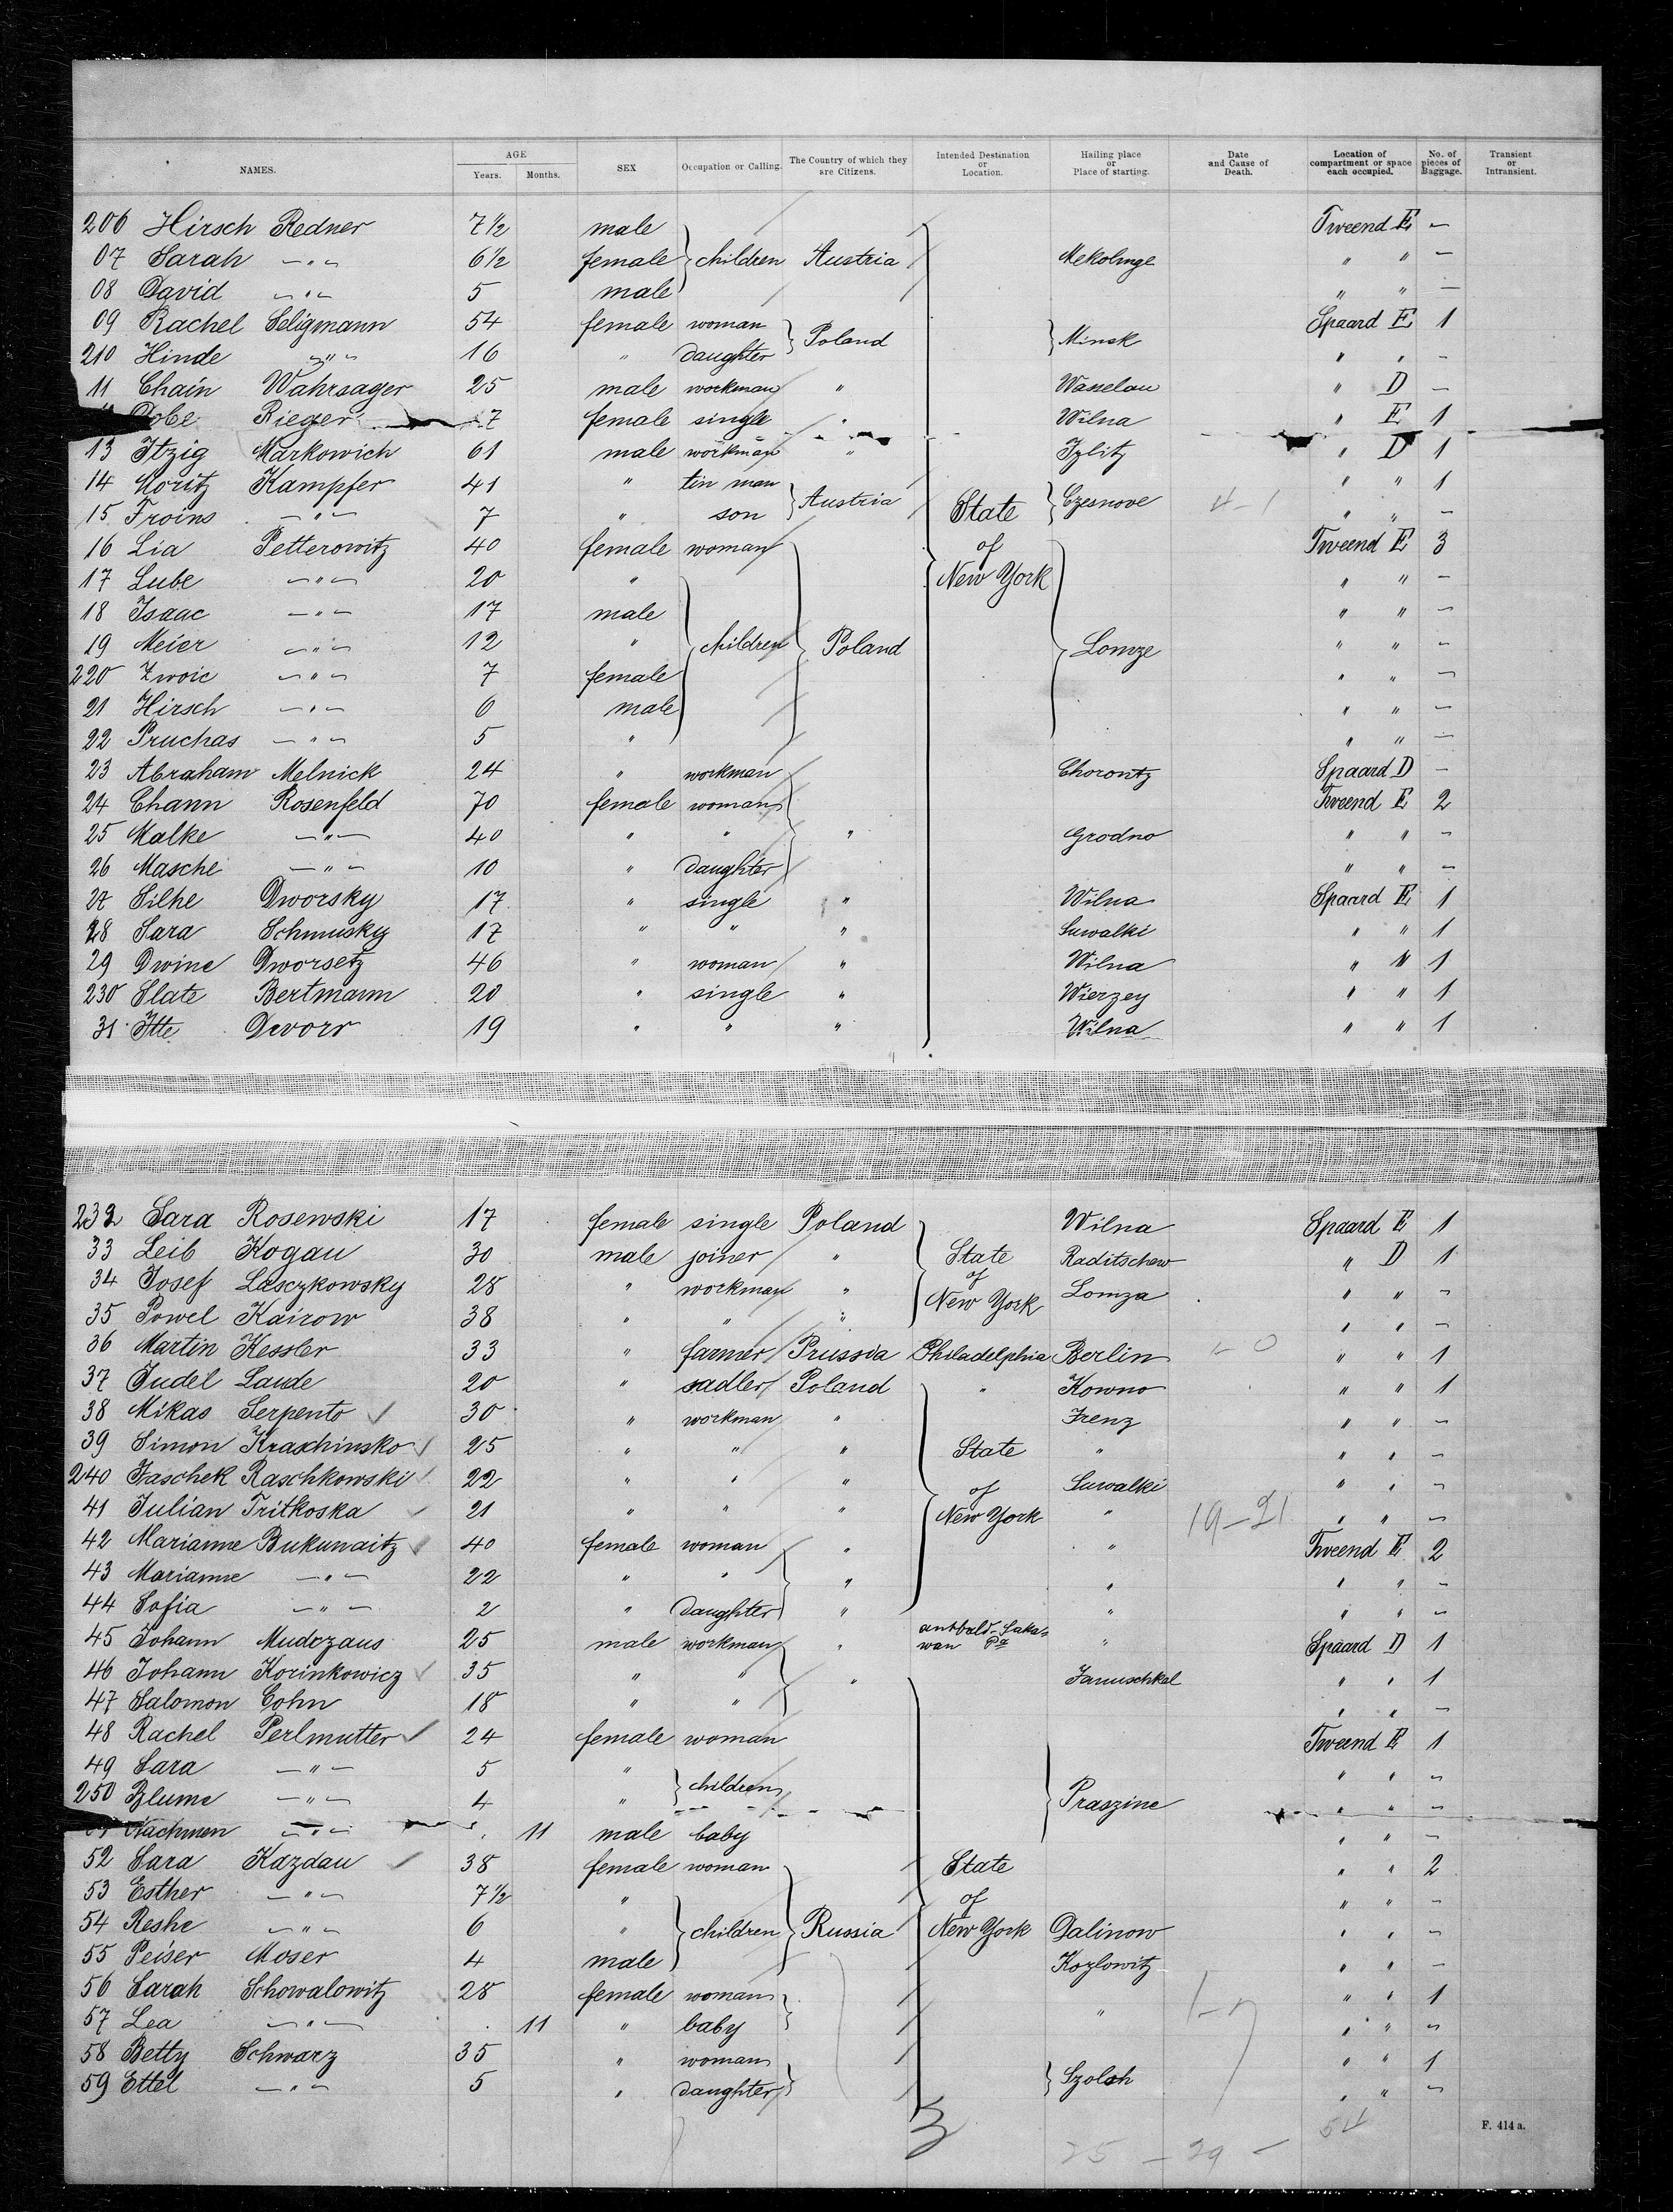 NAMES. AGE Years. Months. SEX Occupation or Calling. The Country of which they are Citizens. Intended Destination or Location. Hailing place or Place of starting. Date and Cause of Death. Location of compartment or space each occupied. No. of pieces of Baggage. Transient or Intransient.
206 Hirsch Redner 7 1/2 male Tweend E —
07 Sarah —"— 6 1/2 female children Austria Mekolnge " " —
08 David —"— 5 male " " —
09 Rachel Seligmann 54 female woman Poland Minsk Spaard E 1
210 Hinde —"— 16 " daughter " " —
11 Chain Wahrsager 25 male workman " Wasselau " D —
Dobe Rieger 17 female single " Wilna " E 1
13 Itzig Markowich 61 male workman " Izlitz " D 1
14 Moritz Kampfer 41 " tin man Austria State Czesnove " " 1
15 Froins —"— 7 " son " " —
16 Lia Petterowitz 40 female woman of Tweend E 3
17 Lube —"— 20 " New York " " —
18 Isaac —"— 17 male " " —
19 Meier —"— 12 " children Poland Lomze " " —
220 Zwoie —"— 7 female " " —
21 Hirsch —"— 6 male " " —
22 Pruchas —"— 5 " " " —
23 Abraham Melnick 24 " workman Chorontz Spaard D —
24 Chann Rosenfeld 70 female woman Tweend E 2
25 Malke —"— 40 " " " Grodno " " —
26 Masche —"— 10 " daughter " " —
27 Silhe Dworsky 17 " single " Wilna Spaard E 1
28 Sara Schmusky 17 " " " Suwalki " " 1
29 Dwine Dworsetz 46 " woman " Wilna " " 1
230 Slate Bertmann 20 " single " Wierzey " " 1
31 Itte Dworr 19 " " " Wilna " " 1
232 Sara Rosewski 17 female single Poland Wilna Spaard E 1
33 Leib Kogau 30 male joiner " State Raditschew " D 1
34 Josef Lasczkowsky 28 " workman " of Lomza " " —
35 Powel Kairow 38 " " " New York " " —
36 Martin Kessler 33 " farmer Prussia Philadelphia Berlin " " 1
37 Judel Laude 20 " sadler Poland " Kowno " " 1
38 Mikas Serpento 30 " workman " Frenz " " —
39 Simon Kraschinsko 25 " " " State " " " —
240 Jaschek Raschkowski 22 " " " of Suwalki " " —
41 Julian Tritkoska 21 " " " New York " 19–21 " " —
42 Marianne Bukunaitz 40 female woman " " Tweend E 2
43 Marianne —"— 22 " " " " " " —
44 Sofia —"— 2 " daughter " " " " —
45 Johann Mudczaus 25 male workman " Pa " Spaard D 1
46 Johann Korinkowicz 35 " " " Januschkel " " 1
47 Salomon Cohn 18 " " " " —
48 Rachel Perlmutter 24 female woman Tweend E 1
49 Sara —"— 5 " children " " —
250 Blume —"— 4 " Praszine " " —
Nachmen —"— 11 male baby " " —
52 Sara Kazdau 38 female woman State " " 2
53 Esther —"— 7 1/2 " of " " —
54 Reshe —"— 6 " children Russia New York Dalinow " " —
55 Peiser Moser 4 male Kozlowitz " " —
56 Sarah Schowalowitz 28 female woman " " " 1
57 Lea —"— 11 " baby " " —
58 Betty Schwarz 35 " woman Szolsh " " 1
59 Ettel —"— 5 " daughter " " —
54
25 – 29 –
F. 414 a.